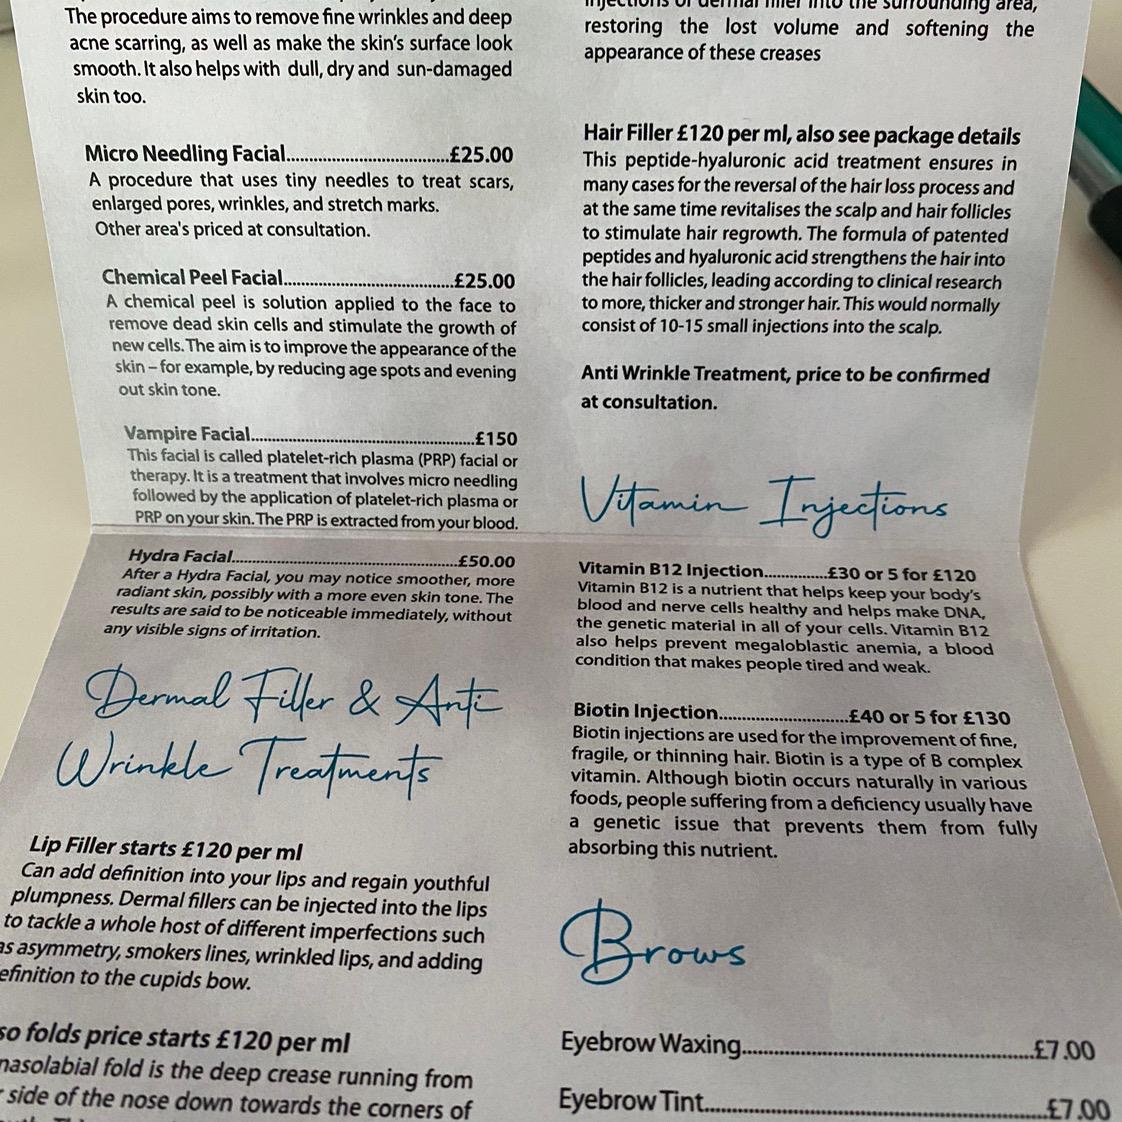 The procedure aims to remove fine wrinkles and deep
acne scarring, as well as make the skin's surface look
smooth. It also helps with dull, dry and sun-damaged
skin too.
Micro Needling Facial..........................................£25.00
A procedure that uses tiny needles to treat scars,
enlarged pores, wrinkles, and stretch marks.
Other area's priced at consultation.
Chemical Peel Facial............................................£25.00
A chemical peel is solution applied to the face to
remove dead skin cells and stimulate the growth of
new cells. The aim is to improve the appearance of the
skin – for example, by reducing age spots and evening
out skin tone.
Vampire Facial..........................................................£150
This facial is called platelet-rich plasma (PRP) facial or
therapy. It is a treatment that involves micro needling
followed by the application of platelet-rich plasma or
PRP on your skin. The PRP is extracted from your blood.
Hydra Facial..........................................................£50.00
After a Hydra Facial, you may notice smoother, more
radiant skin, possibly with a more even skin tone. The
results are said to be noticeable immediately, without
any visible signs of irritation.
Dermal Filler & Anti
Wrinkle Treatments
Lip Filler starts £120 per ml
Can add definition into your lips and regain youthful
plumpness. Dermal fillers can be injected into the lips
to tackle a whole host of different imperfections such
as asymmetry, smokers lines, wrinkled lips, and adding
efinition to the cupids bow.
so folds price starts £120 per ml
nasolabial fold is the deep crease running from
side of the nose down towards the corners of
injections of dermal filler into the surrounding area,
restoring the lost volume and softening the
appearance of these creases
Hair Filler £120 per ml, also see package details
This peptide-hyaluronic acid treatment ensures in
many cases for the reversal of the hair loss process and
at the same time revitalises the scalp and hair follicles
to stimulate hair regrowth. The formula of patented
peptides and hyaluronic acid strengthens the hair into
the hair follicles, leading according to clinical research
to more, thicker and stronger hair. This would normally
consist of 10-15 small injections into the scalp.
Anti Wrinkle Treatment, price to be confirmed
at consultation.
Vitamin Injections
Vitamin B12 Injection...............£30 or 5 for £120
Vitamin B12 is a nutrient that helps keep your body's
blood and nerve cells healthy and helps make DNA,
the genetic material in all of your cells. Vitamin B12
also helps prevent megaloblastic anemia, a blood
condition that makes people tired and weak.
Biotin Injection..............................£40 or 5 for £130
Biotin injections are used for the improvement of fine,
fragile, or thinning hair. Biotin is a type of B complex
vitamin. Although biotin occurs naturally in various
foods, people suffering from a deficiency usually have
a genetic issue that prevents them from fully
absorbing this nutrient.
Brows
Eyebrow Waxing..........................................................£7.00
Eyebrow Tint................................................................£7.00